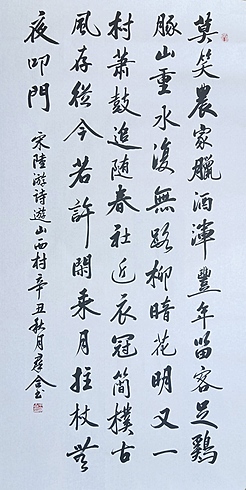 莫笑農家臘酒渾豐年留客足鷄
豚山重水復無路柳暗花明又一
村蕭鼓追随春社近衣冠簡樸古
風存從今若許閑乘月拄杖無
夜叩門
宋陸游詩遊山西村辛丑秋月